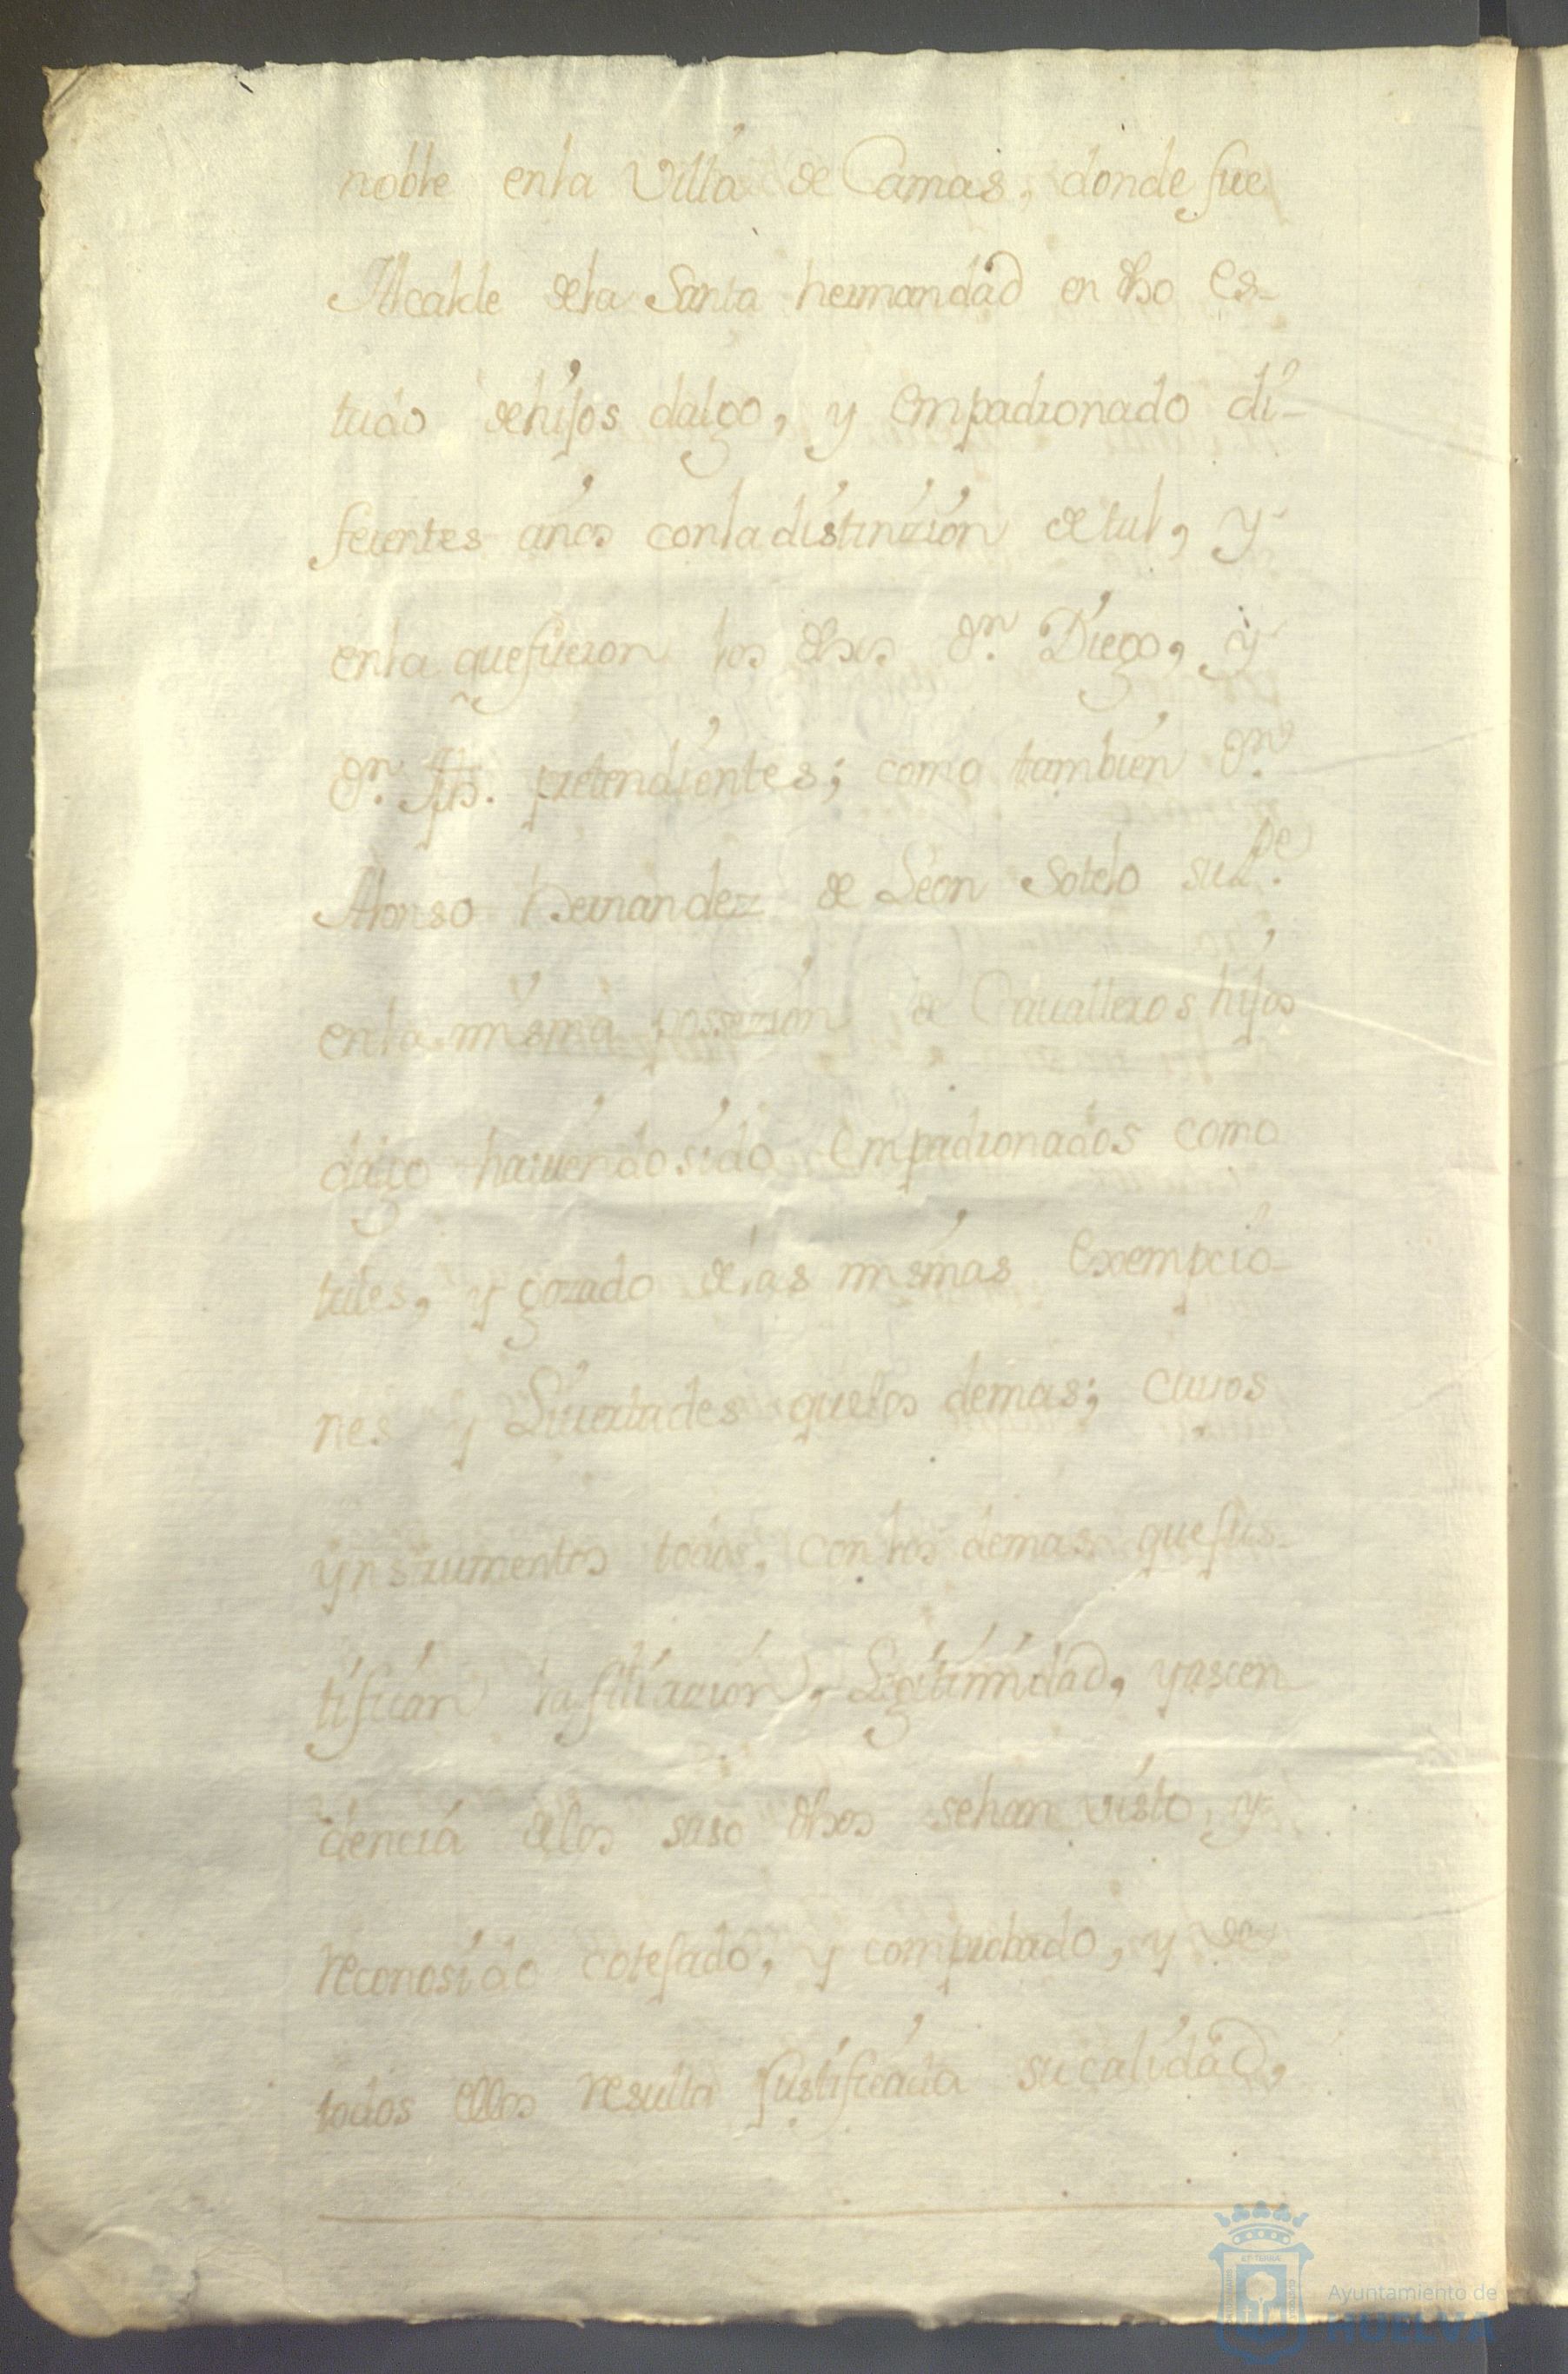 noble enla Villa de Camas, donde fue
Alcalde dela Santa hermandad en dho es-
tado dehijos dalgo, y empadronado di-
ferentes años conladistinzion detal, y
enla quefueron los dhos Dn. Diego, y
Dn. Jph. pretendientes; como tambien Dn.
Alonso Hernandez de Leon Sotelo su Pe.
enla misma possezion de Cavalleros hijos
dalgo haviendosido empadronados como
tales, y gozado delas mismas exempcio-
nes y Livertades quelos demas; cuios
ynstrumentos todos, con los demas quejus-
tifican la filiazion, Legitimidad, yascen-
dencia delos suso dhos sehan visto, y
reconosido cotejado, y comprobado, y de
todos ellos resulta justificada sucalidad,
Ayuntamiento de
HUELVA